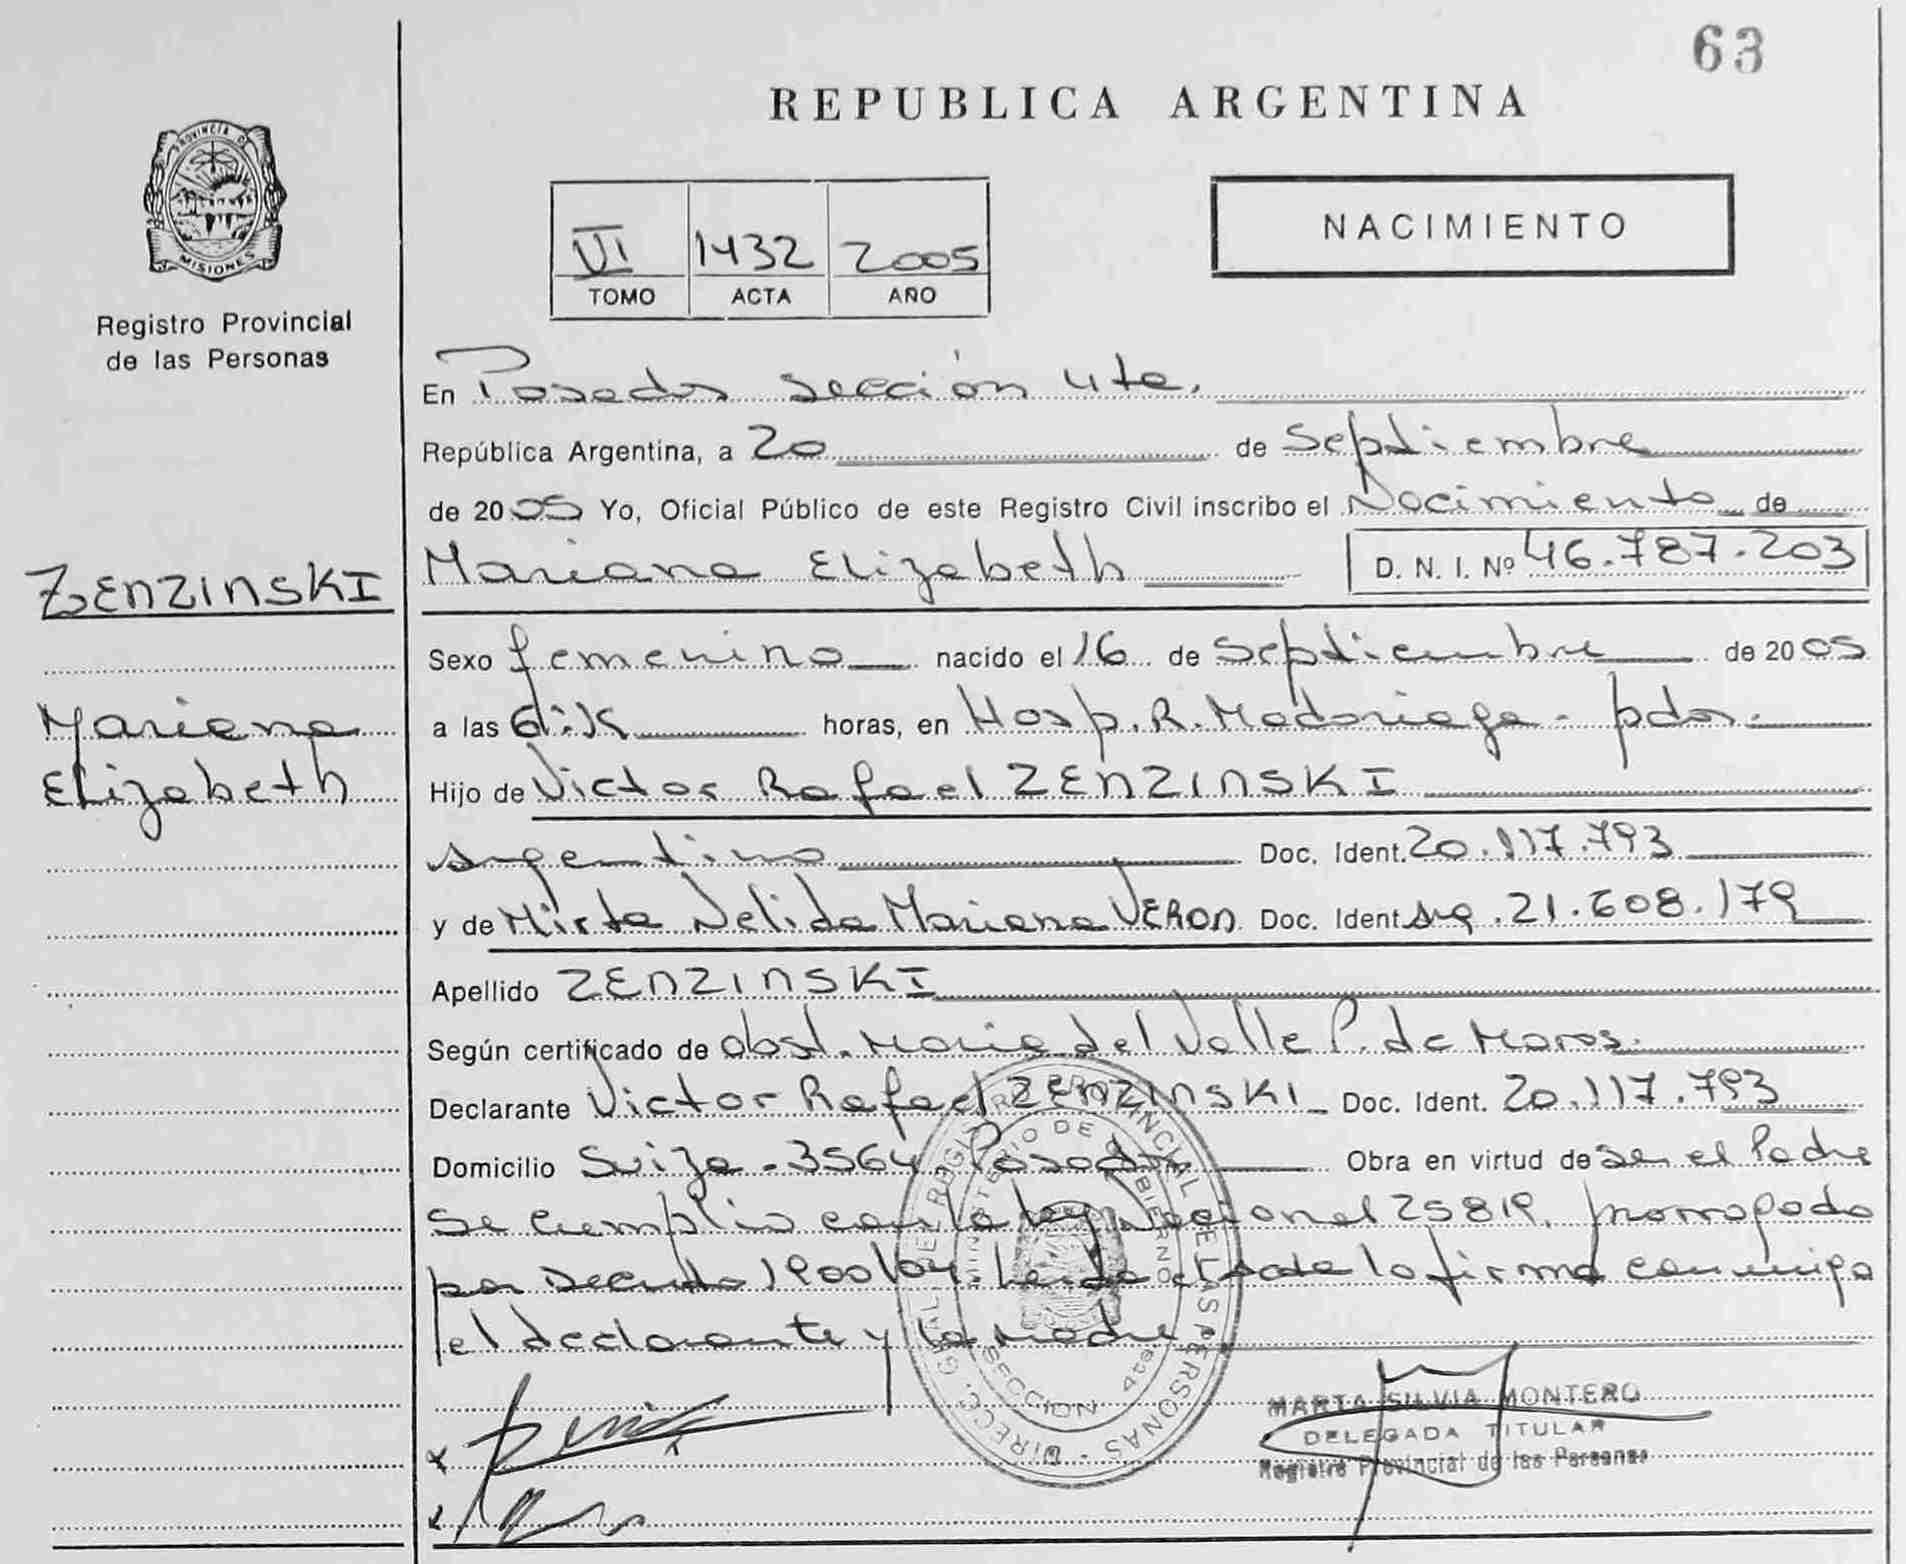 63
REPUBLICA ARGENTINA
PROVINCIA DE
MISIONES
Registro Provincial
de las Personas
NACIMIENTO
VI 1432 2005
TOMO ACTA AÑO
En Posadas sección 4ta.
República Argentina, a 20 de Septiembre
de 2005 Yo, Oficial Público de este Registro Civil inscribo el Nacimiento de
Mariana Elizabeth D. N. I. Nº 46.787.203
ZENZINSKI
Mariana
Elizabeth
Sexo femenino nacido el 16 de Septiembre de 2005
a las horas, en Hosp. R. Madariaga - pdas.
Hijo de Victor Rafael ZENZINSKI
argentino Doc. Ident. 20.117.793
y de Mirta Nelida Mariana VERON Doc. Ident. arg. 21.608.179
Apellido ZENZINSKI
Según certificado de obst. Maria del Valle P. de Moros.
Declarante Victor Rafael ZENZINSKI Doc. Ident. 20.117.793
Domicilio Suiza - 3564 Posadas Obra en virtud de ser el Padre
Se cumplio con la ley Nacional 25819. prorrogada
por Decreto 1900/04 Leida el acta la firma conmigo
el declarante y la madre
DIRECC. GRAL. DEL REGISTRO PROVINCIAL DE LAS PERSONAS
MINISTERIO DE GOBIERNO
SECCION 4ta
MARTA SILVIA MONTERO
DELEGADA TITULAR
Registro Provincial de las Personas